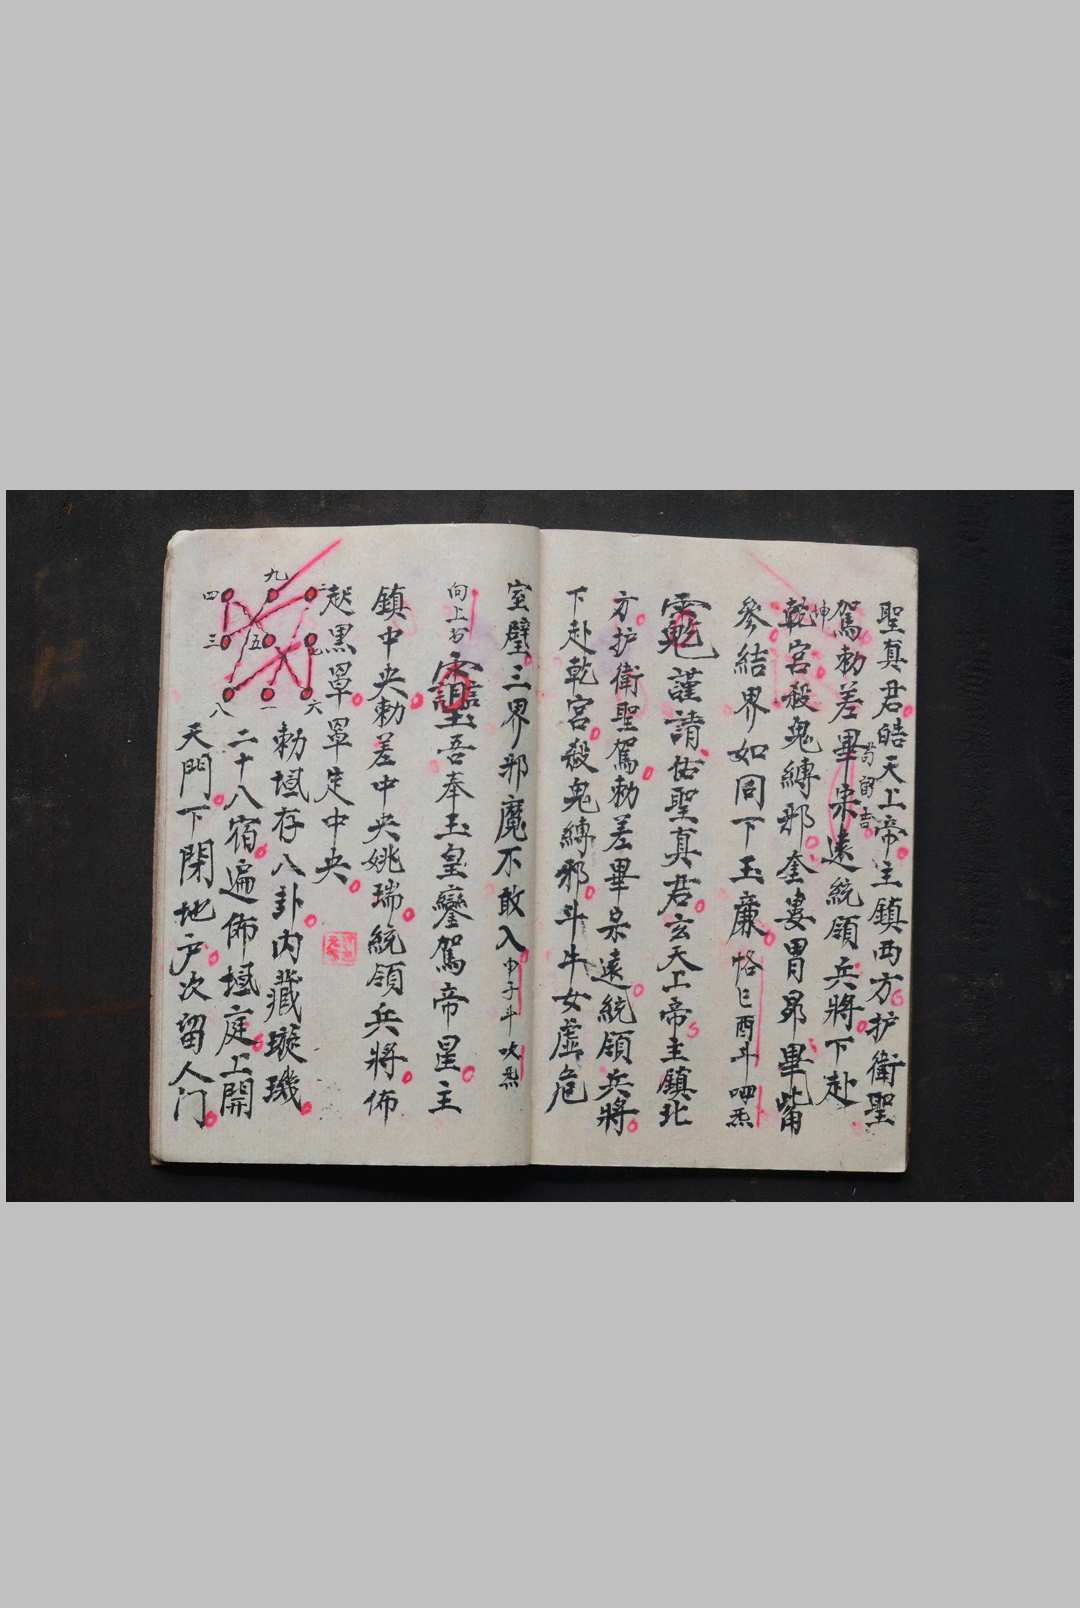 聖真君皓天上帝主鎮西方护衛聖
駕勅差畢宋遠統領兵將下赴
苟留吉
坤
乾宮殺鬼縛邪奎婁胃昴畢觜
參結界如同下玉廉 恪巳酉斗呬炁
謹請佑聖真君玄天上帝主鎮北
方护衛聖駕勅差畢宋遠統領兵將
下赴乾宮殺鬼縛邪斗牛女虛危
室璧三界邪魔不敢入 中子斗吹炁
向上書
吾奉玉皇鑾駕帝星主
鎮中央勅差中央姚瑞統領兵將佈
起黑罩罩定中央
勅域存八卦内藏璇璣
二十八宿遍佈域庭上開
天門下閉地户次留人门
四 九 二
三 五 七
八 一 六